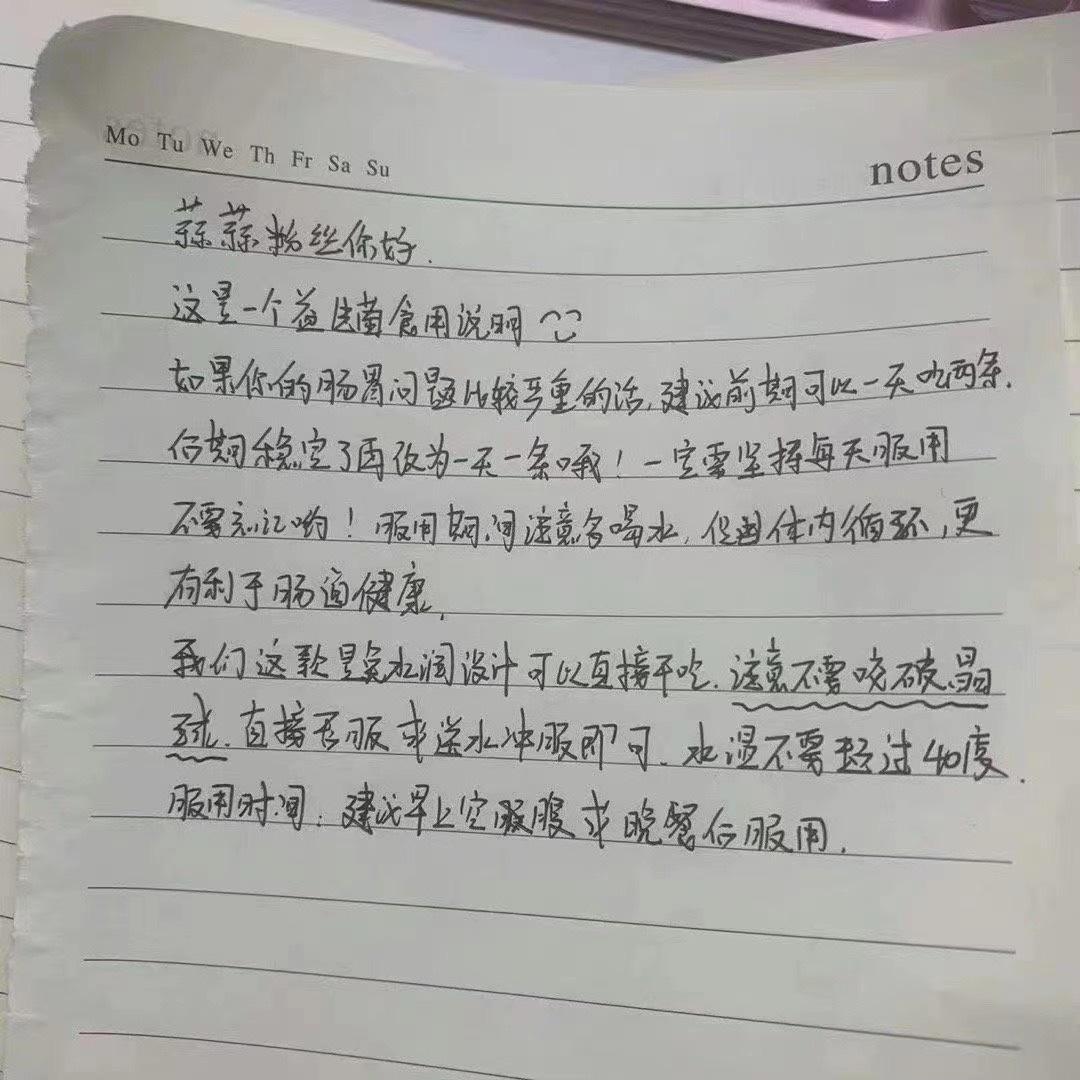 Mo Tu We Th Fr Sa Su
notes
蒜蒜粉丝你好.
这是一个益生菌食用说明
如果你的肠胃问题比较严重的话,建议前期可以一天吃两条.
后期稳定了再改为一天一条哦！一定要坚持每天服用
不要忘记哟！服用期间注意多喝水,促进体内循环,更
有利于肠道健康.
我们这款是免水润设计可以直接干吃.注意不要咬破晶
球.直接吞服或送水冲服即可.水温不要超过40度.
服用时间:建议早上空服服或晚餐后服用.